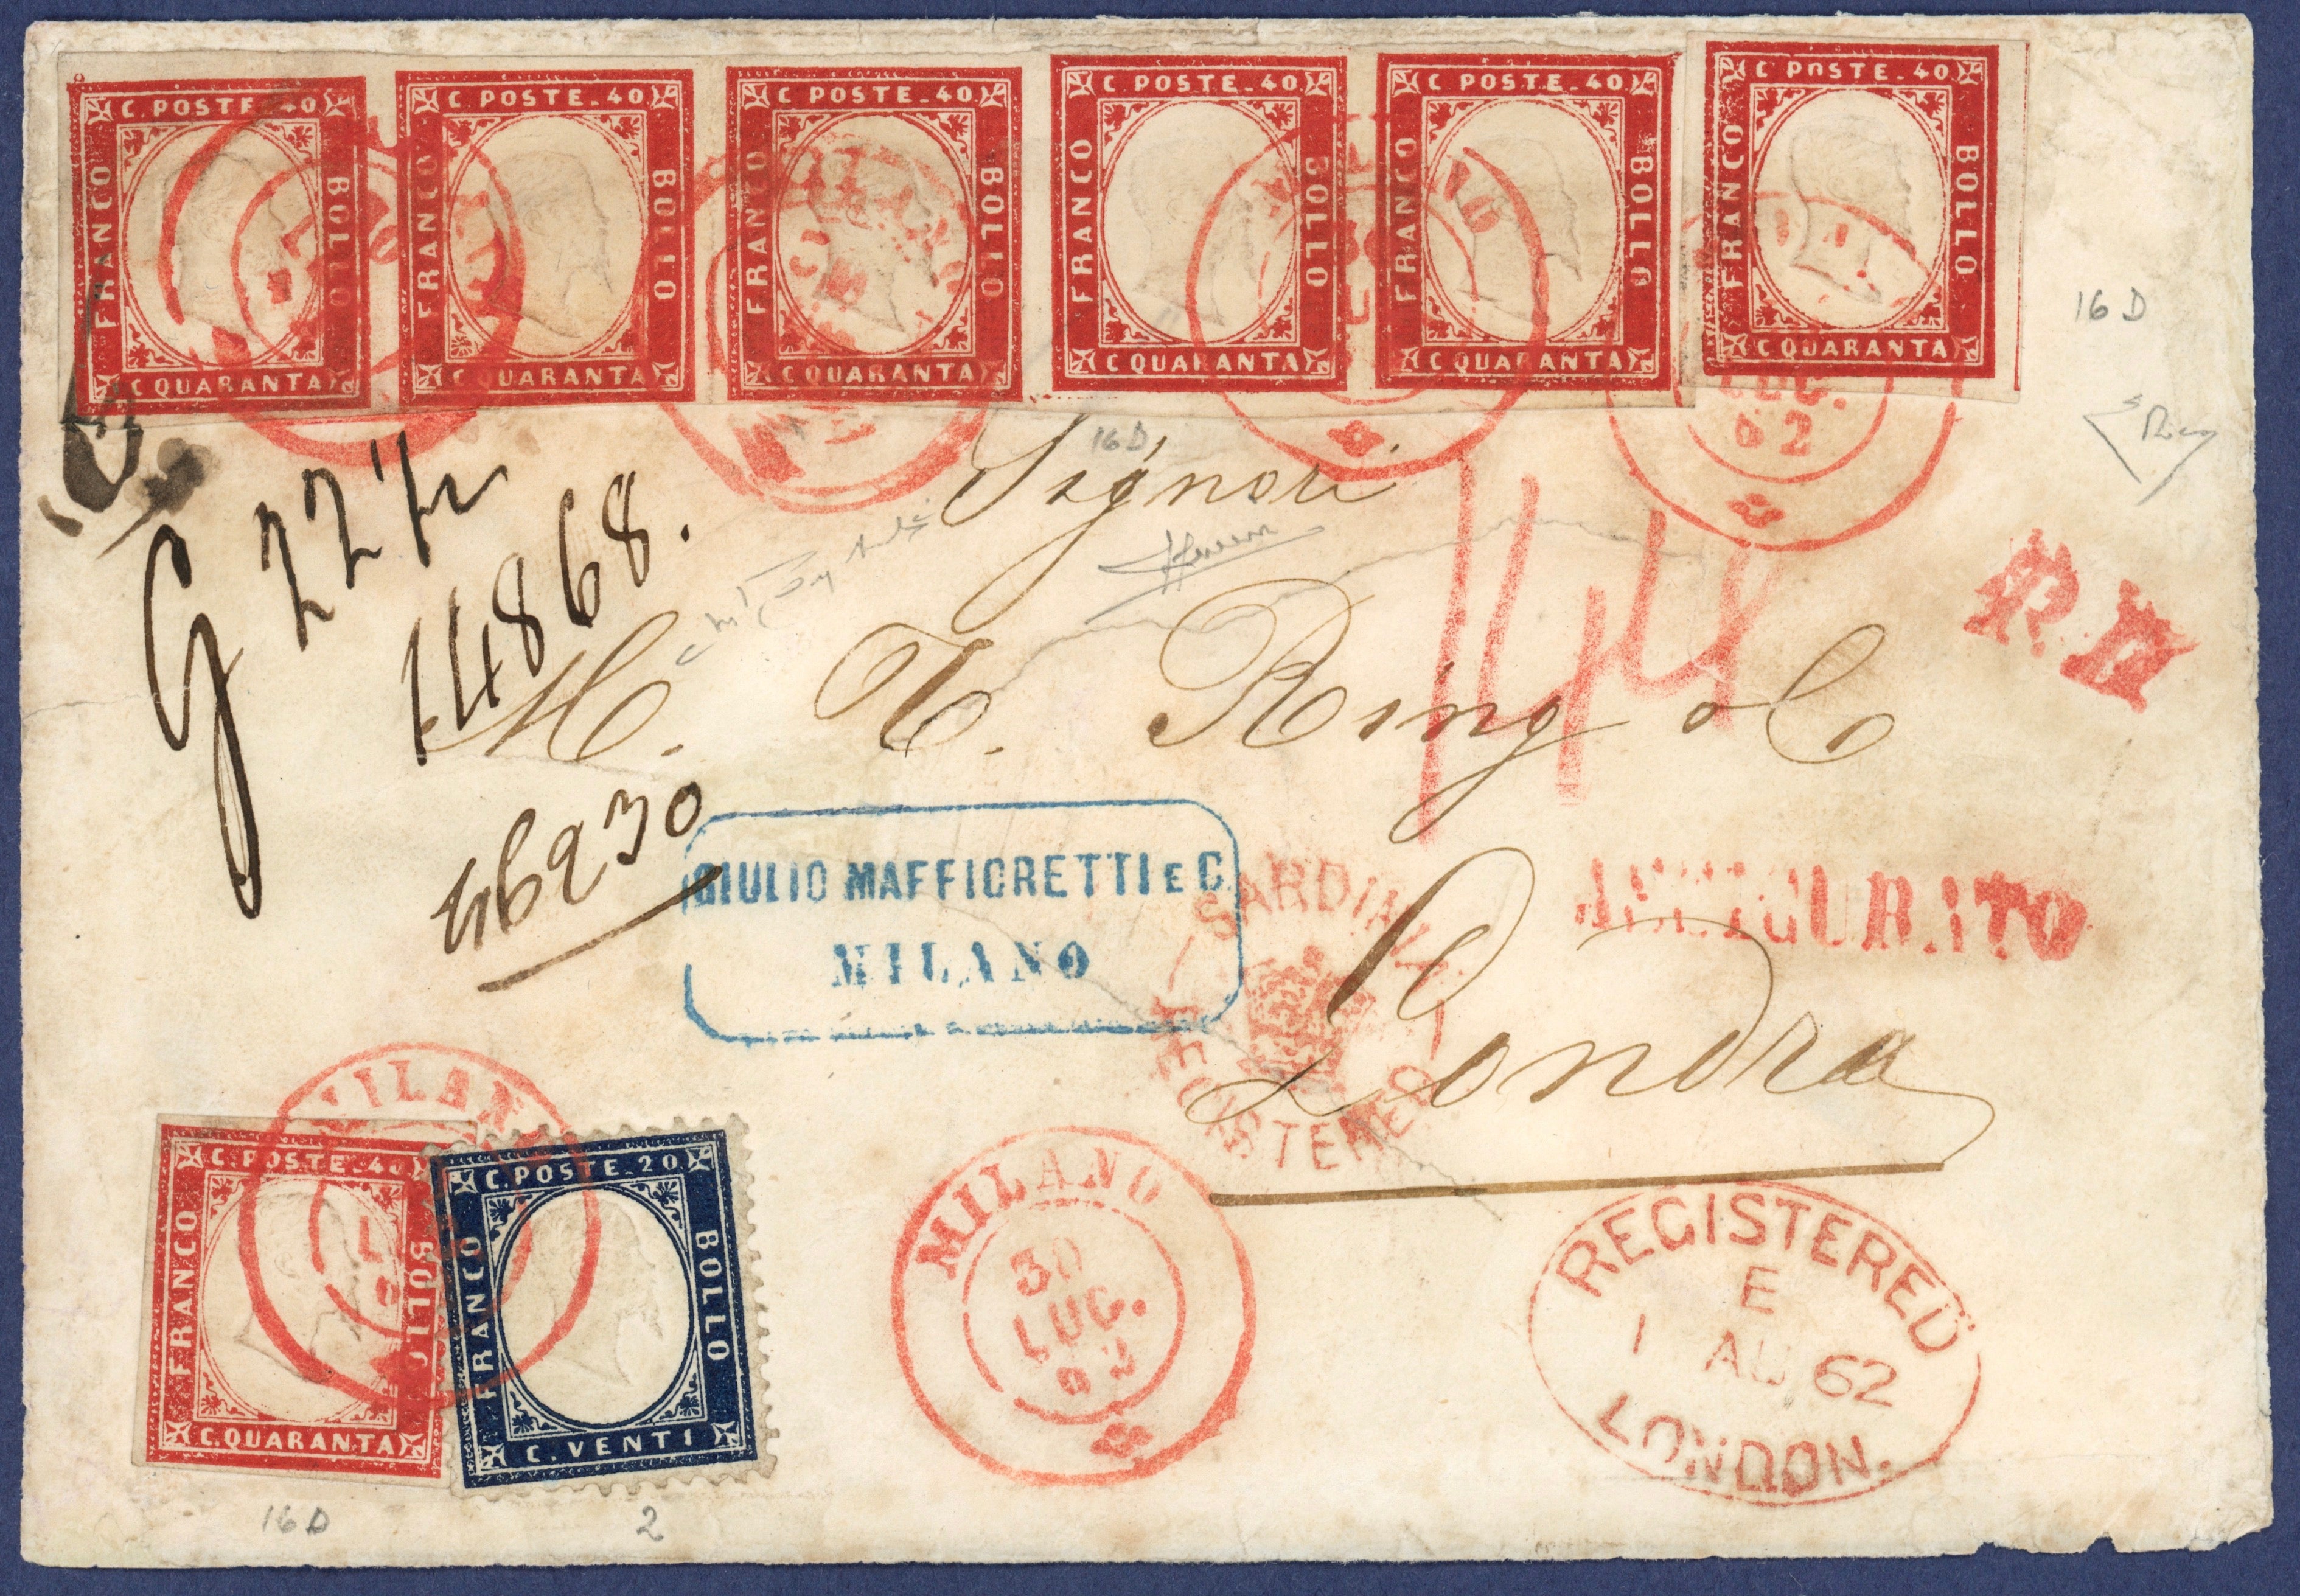 C. POSTE. 40
FRANCO
BOLLO
C. QUARANTA
C POSTE. 40
FRANCO
BOLLO
C QUARANTA
C POSTE. 40
FRANCO
BOLLO
C QUARANTA
C POSTE. 40
FRANCO
BOLLO
C QUARANTA
C POSTE. 40
FRANCO
BOLLO
C QUARANTA
C POSTE. 40
FRANCO
BOLLO
C QUARANTA
MILANO
LUG.
62
16 D
16 D
Signori
G 227
14868.
46230
H. T. King & C
P.D.
GIULIO MAFFIORETTI E C.
MILANO
ASSICURATO
SARDINIA
REGISTERED
Londra
MILANO
C. POSTE. 40
FRANCO
BOLLO
C. QUARANTA
C. POSTE. 20
FRANCO
BOLLO
C. VENTI
MILANO
30
LUG.
62
REGISTERED
E
1 AU 62
LONDON.
16 D
2